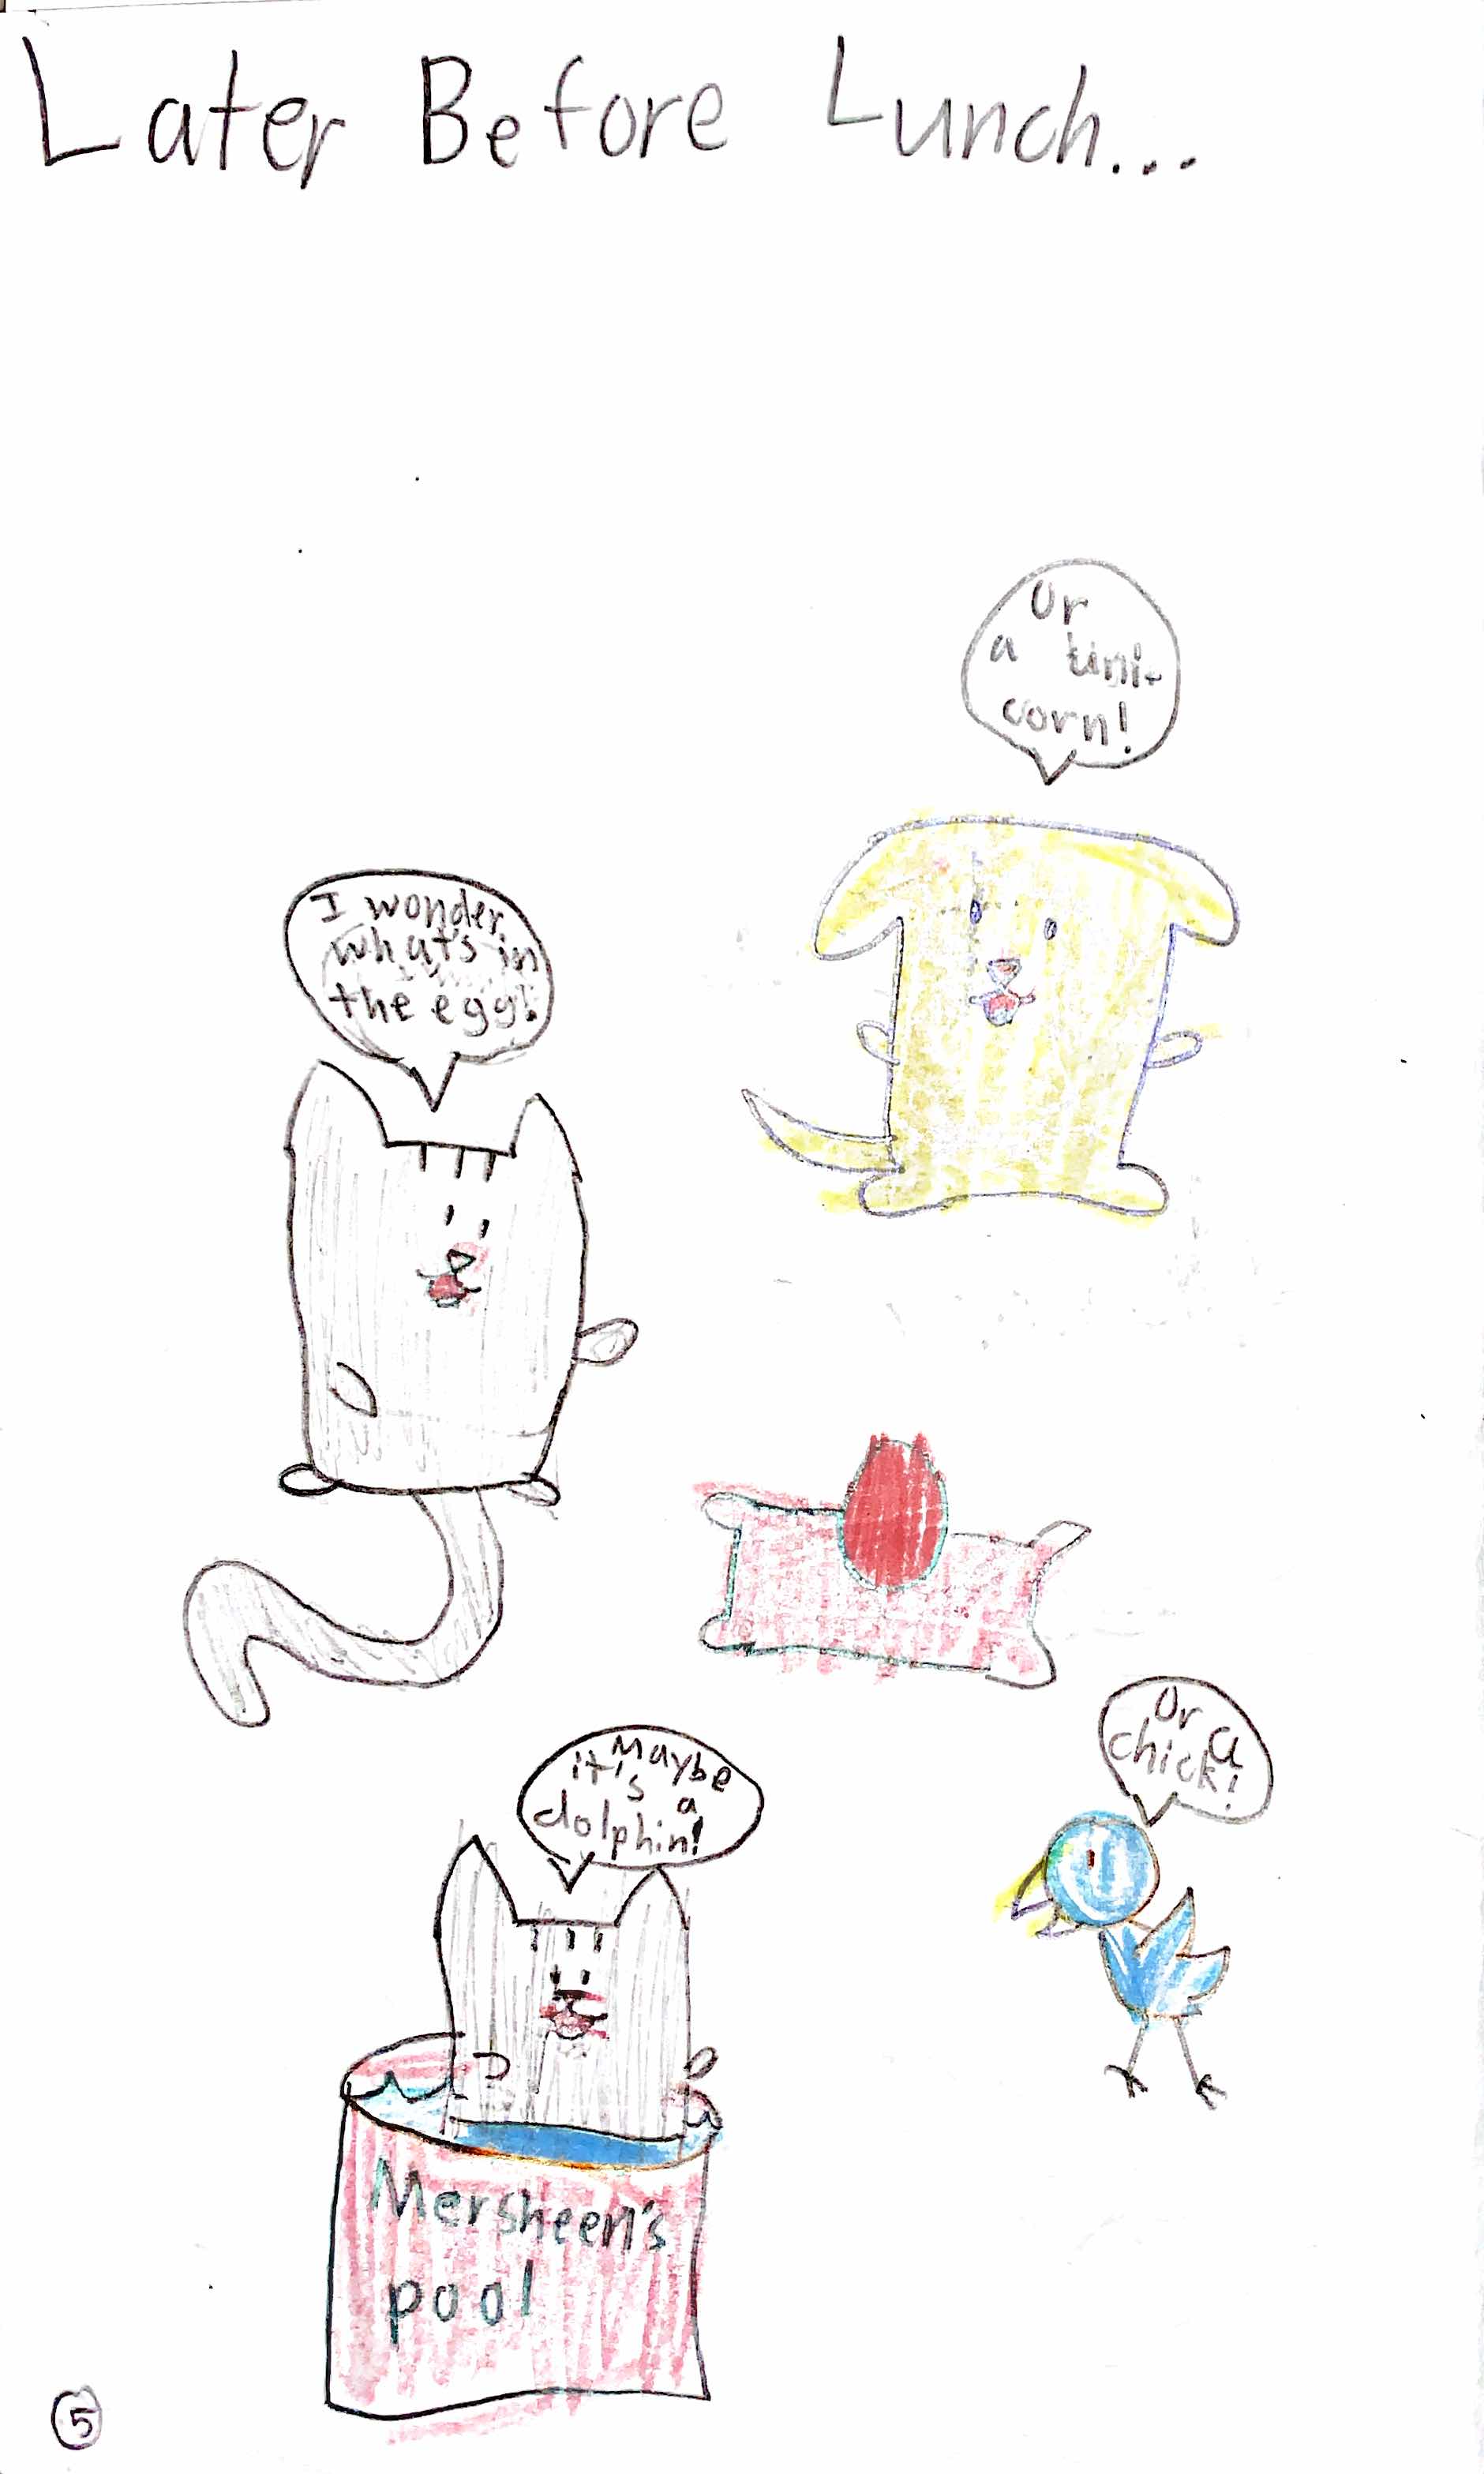 Later Before Lunch...
Or
a uni-
corn!
I wonder
what's in
the egg!
Maybe
it's a
dolphin!
Or a
chick!
Mersheen's
pool
5